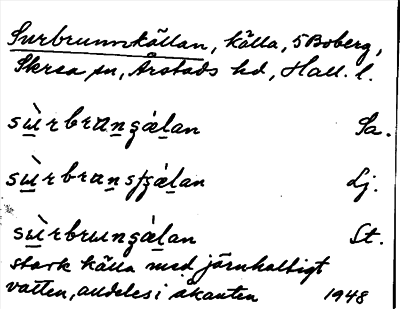 Surbrunnskällan, källa, S Boberg,
Skrea sn, Årstads hd, Hall. l.
sùrbrɯnʒǽlan Sa.
sùrbrɯnsʃʒǽlan Lj.
sùrbrunʒǽlan St.
stark källa med järnhaltigt
vatten, alldeles i åkanten 1948